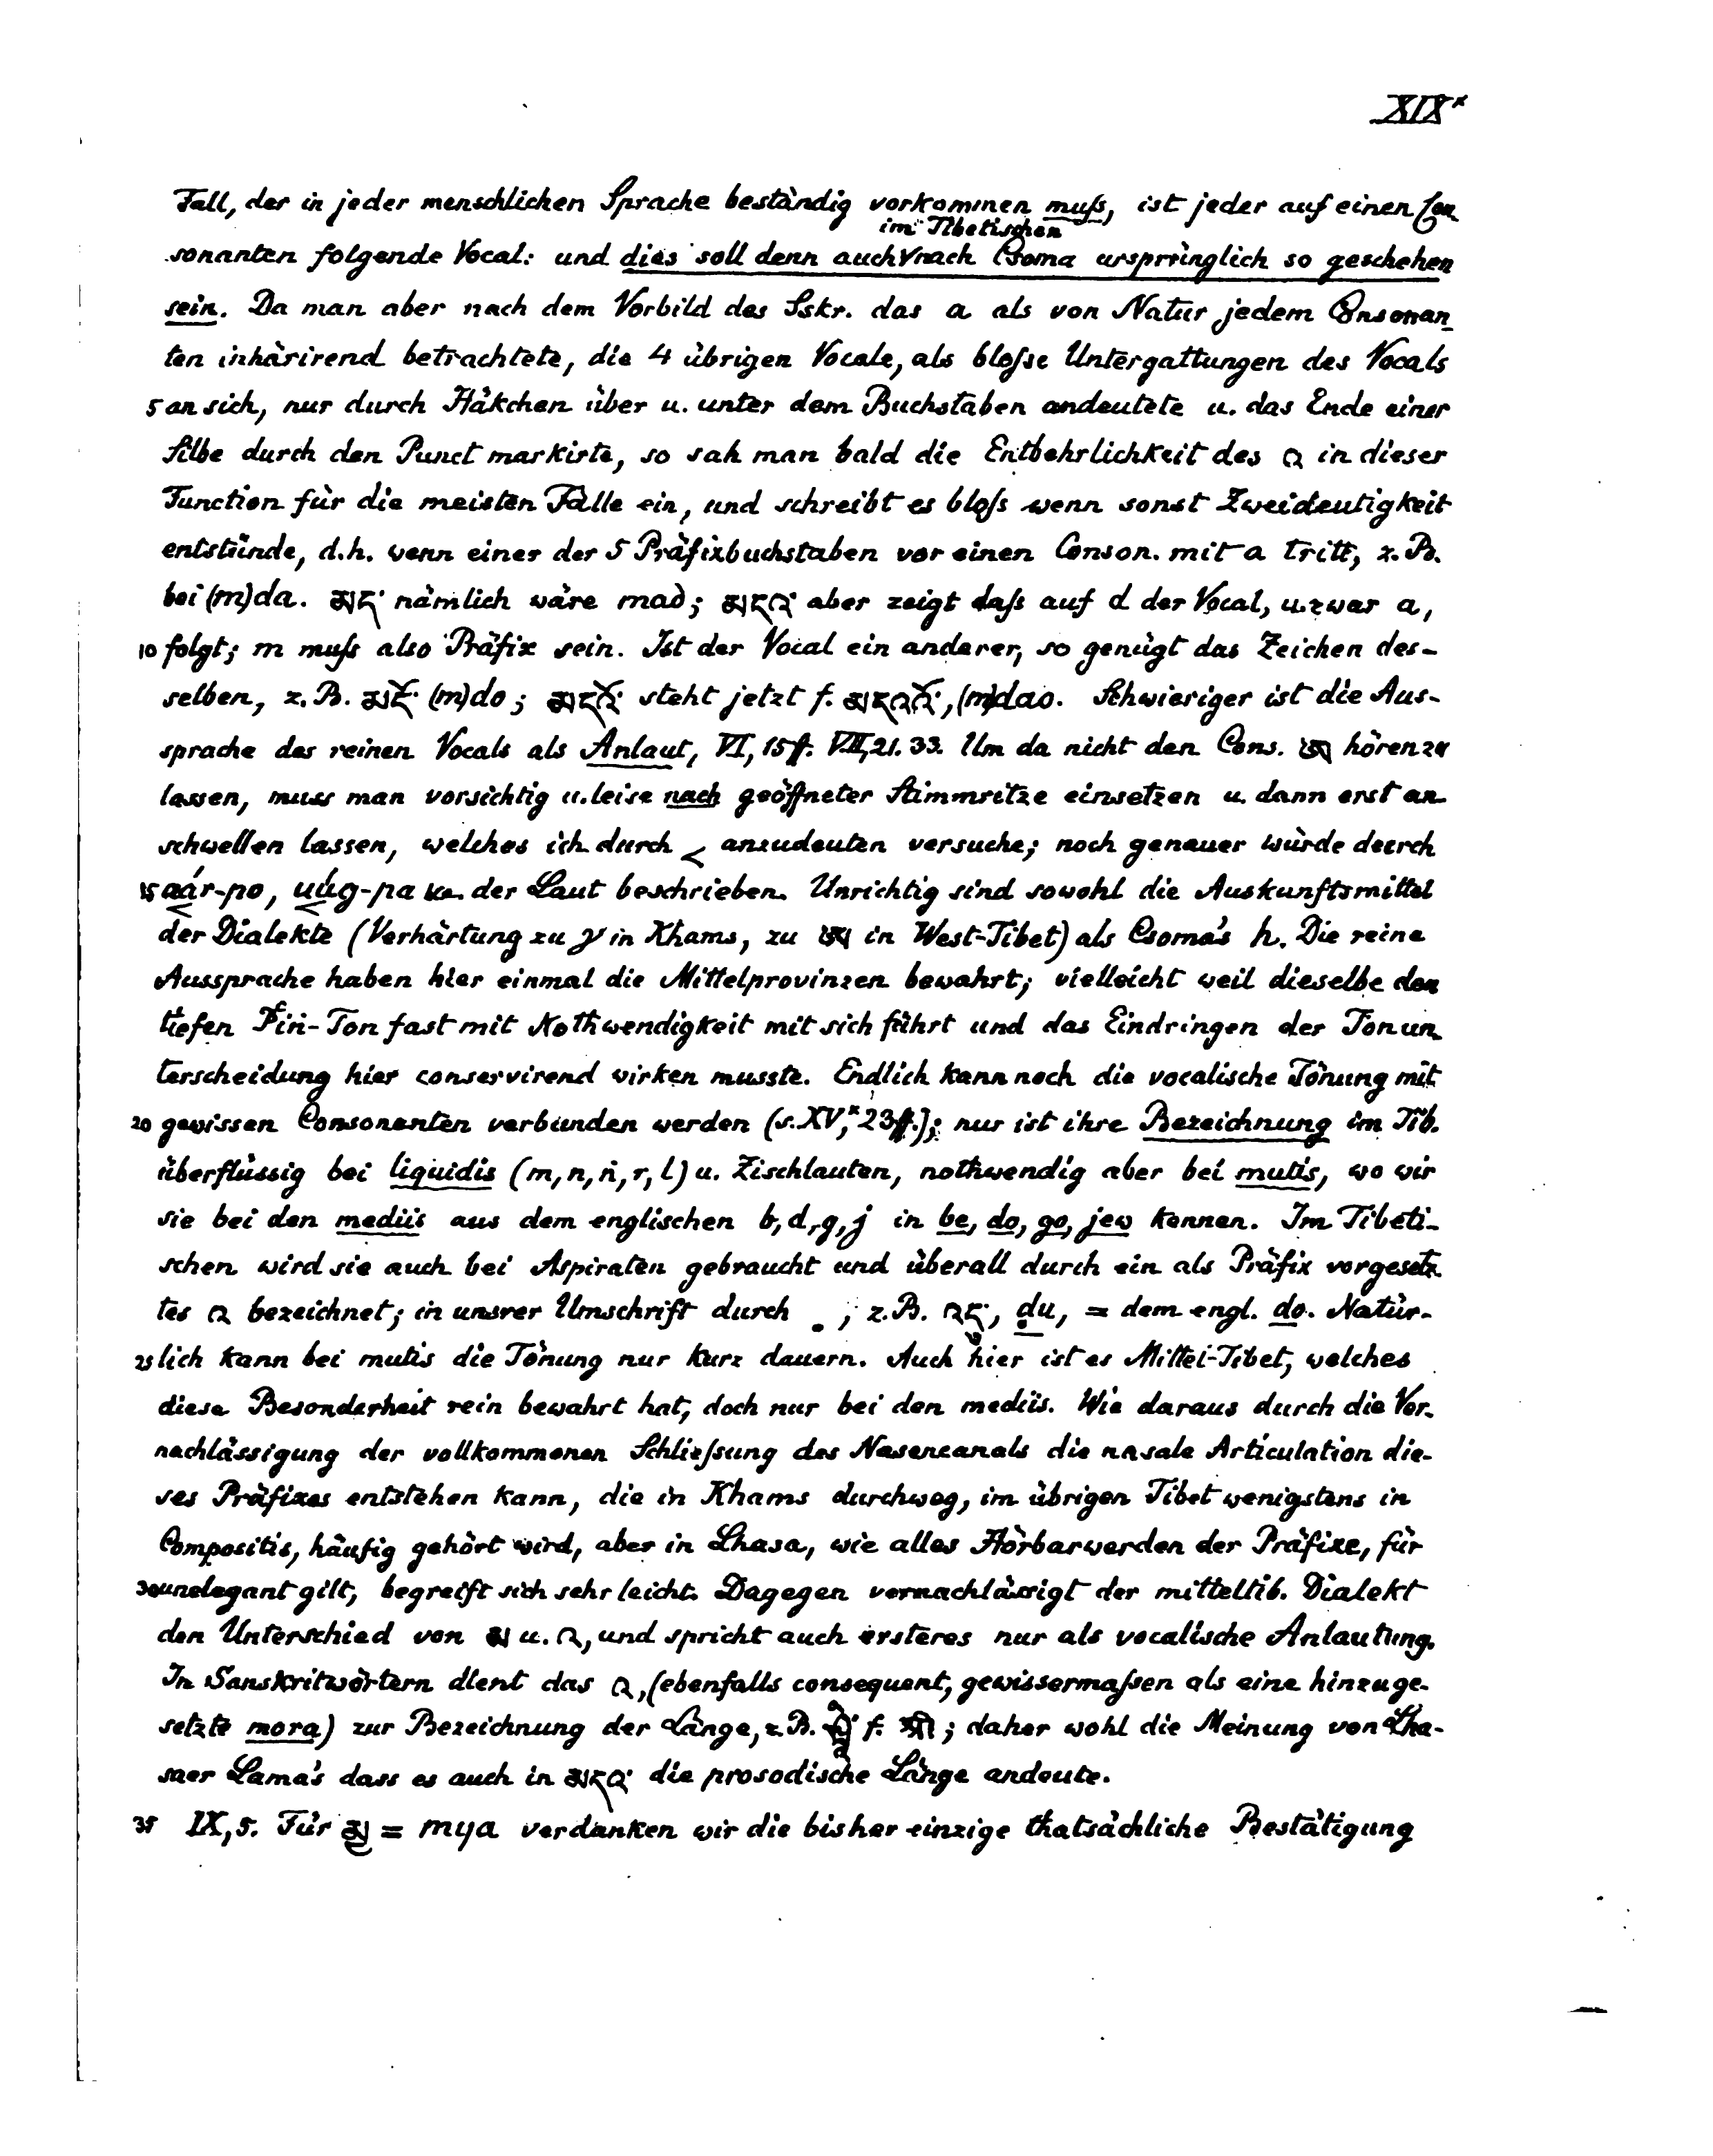 XIXˣ
Fall, der in jeder menschlichen Sprache beständig vorkommen muſs, ist jeder auf einen Con-
im Tibetischen
sonanten folgende Vocal: und dies soll denn auch √nach Csoma ursprünglich so geschehen
sein. Da man aber nach dem Vorbild des Sskr. das a als von Natur jedem Consonan-
ten inhärirend betrachtete, die 4 übrigen Vocale, als bloſse Untergattungen des Vocals
5 an sich, nur durch Häkchen über u. unter dem Buchstaben andeutete u. das Ende einer
Silbe durch den Punct markirte, so sah man bald die Entbehrlichkeit des འ in dieser
Function für die meisten Fälle ein, und schreibt es bloſs wenn sonst Zweideutigkeit
entstünde, d.h. wenn einer der 5 Präfixbuchstaben vor einen Conson. mit a tritt, z. B.
bei (m)da. མད་ nämlich wäre mad; མདའ་ aber zeigt daſs auf d der Vocal, u. zwar a,
10 folgt; m muſs also Präfix sein. Ist der Vocal ein anderer, so genügt das Zeichen des-
selben, z. B. མདོ་ (m)do; མདའོ་ steht jetzt f. མདའའོ་, (m)dao. Schwieriger ist die Aus-
sprache des reinen Vocals als Anlaut, VI, 15ff. VII, 21. 33. Um da nicht den Cons. ཨ hören zu
lassen, muss man vorsichtig u. leise nach geöffneter Stimmritze einsetzen u. dann erst an-
schwellen lassen, welches ich durch < anzudeuten versuche; noch genauer würde durch
15 aár-po, uúg-pa etc. der Laut beschrieben. Unrichtig sind sowohl die Auskunftsmittel
der Dialekte (Verhärtung zu γ in Khams, zu ཨ in West-Tibet) als Csoma's h. Die reine
Aussprache haben hier einmal die Mittelprovinzen bewahrt; vielleicht weil dieselbe den
tiefen Ṫin-Ton fast mit Nothwendigkeit mit sich führt und das Eindringen der Tonun-
terscheidung hier conservirend wirken musste. Endlich kann noch die vocalische Tönung mit
20 gewissen Consonanten verbunden werden (s. XV,ˣ 23ff.); nur ist ihre Bezeichnung im Tib.
überflüssig bei liquidis (m, n, ṅ, r, l) u. Zischlauten, nothwendig aber bei mutis, wo wir
sie bei den mediis aus dem englischen b, d, g, j in be, do, go, jew kennen. Im Tibeti-
schen wird sie auch bei Aspiraten gebraucht und überall durch ein als Präfix vorgesetz-
tes འ bezeichnet; in unsrer Umschrift durch . ; z. B. འདུ་, ḍu, = dem engl. do. Natür-
25 lich kann bei mutis die Tönung nur kurz dauern. Auch hier ist es Mittel-Tibet, welches
diese Besonderheit rein bewahrt hat, doch nur bei den mediis. Wie daraus durch die Ver-
nachlässigung der vollkommenen Schlieſsung des Nasencanals die nasale Articulation die-
ses Präfixes entstehen kann, die in Khams durchweg, im übrigen Tibet wenigstens in
Compositis, häufig gehört wird, aber in Lhasa, wie alles Hörbarwerden der Präfixe, für
30 unelegant gilt, begreift sich sehr leicht. Dagegen vernachlässigt der mitteltib. Dialekt
den Unterschied von མ u. འ, und spricht auch ersteres nur als vocalische Anlautung.
In Sanskritwörtern dient das འ, (ebenfalls consequent, gewissermaſsen als eine hinzuge-
setzte mora) zur Bezeichnung der Länge, z. B. ཤྲཱི་ f. श्री; daher wohl die Meinung von Lha-
saer Lama's dass es auch in མདའ་ die prosodische Länge andeute.
35 IX, 5. Für མྱ = mya verdanken wir die bisher einzige thatsächliche Bestätigung